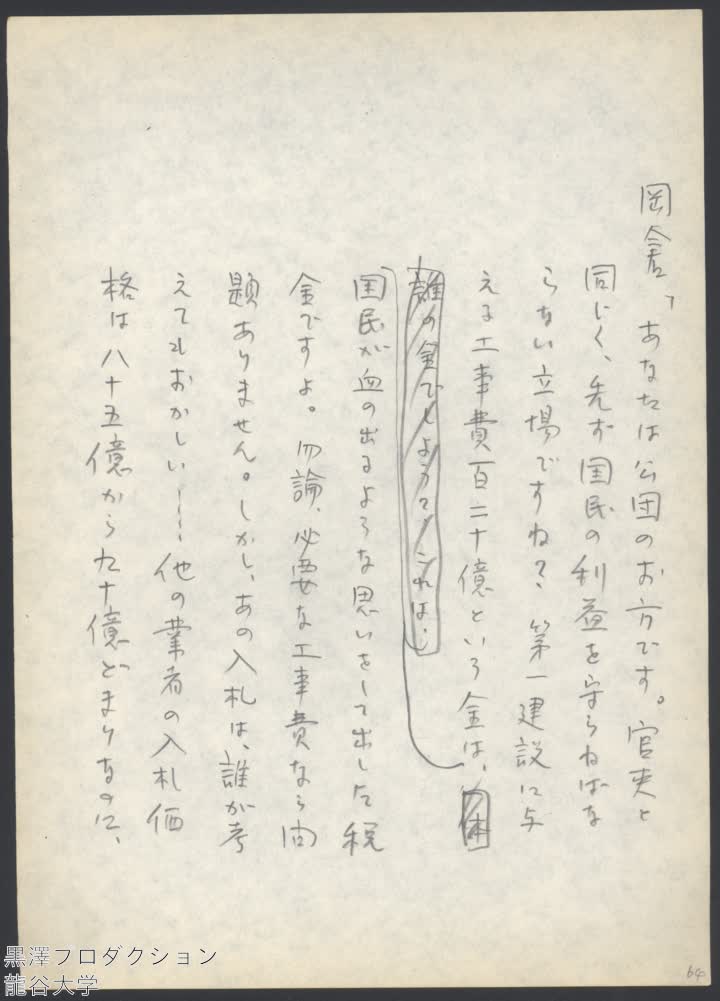 岡倉「あなたは公団のお方です。官吏と
同じく、先ず国民の利益を守らねばな
らない立場ですね？ 第一建設に与
える工事費百二十億という金は、一体
誰の金でしょうて、これは、
国民が血の出るような思いをして出した税
金ですよ。勿論、必要な工事費なら問
題ありません。しかし、あの入札は、誰が考
えてもおかしい……他の業者の入札価
格は八十五億から九十億どまりなのに、
64
黒澤プロダクション
龍谷大学